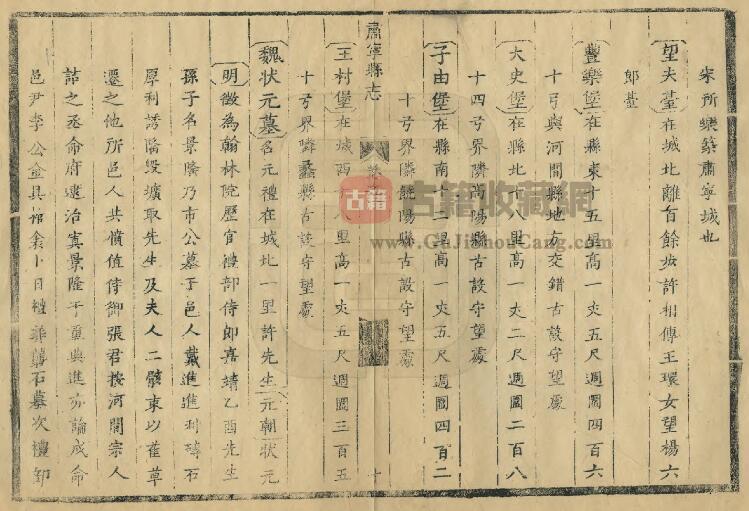 宋所築築肅寧城也
望夫臺在城北離百餘步許相傳王環女望楊六
郎臺
豐樂堡在縣東十五里高一丈五尺週圍四百六
十弓與河間縣地方交錯古設守望處
大史堡在縣北十八里高一丈二尺週圍二百八
十四弓界隣高陽縣古設守望處
子由堡在縣南十二里高一丈五尺週圍四百二
十弓界隣饒陽縣古設守望處
肅寧縣志
十
王村堡在城西十八里高一丈五尺週圍三百五
十弓界隣蠡縣古設守望處
魏狀元墓名元禮在城北一里許先生元朝狀元
明徵為翰林院歷官禮部侍郎嘉靖乙酉先生
孫子名景隆乃市公墓于邑人戴進進利磚石
厚利誘隆毀壙取先生及夫人二骸束以萑草
遷之他所邑人共憤值侍御張君按河間宗人
詰之丞命府逮治寘景隆于重典進亦論戍命
邑尹李公金具棺衾卜日禮葬龔石墓次禮卸
古籍收藏網
www.GuJiShouCang.com